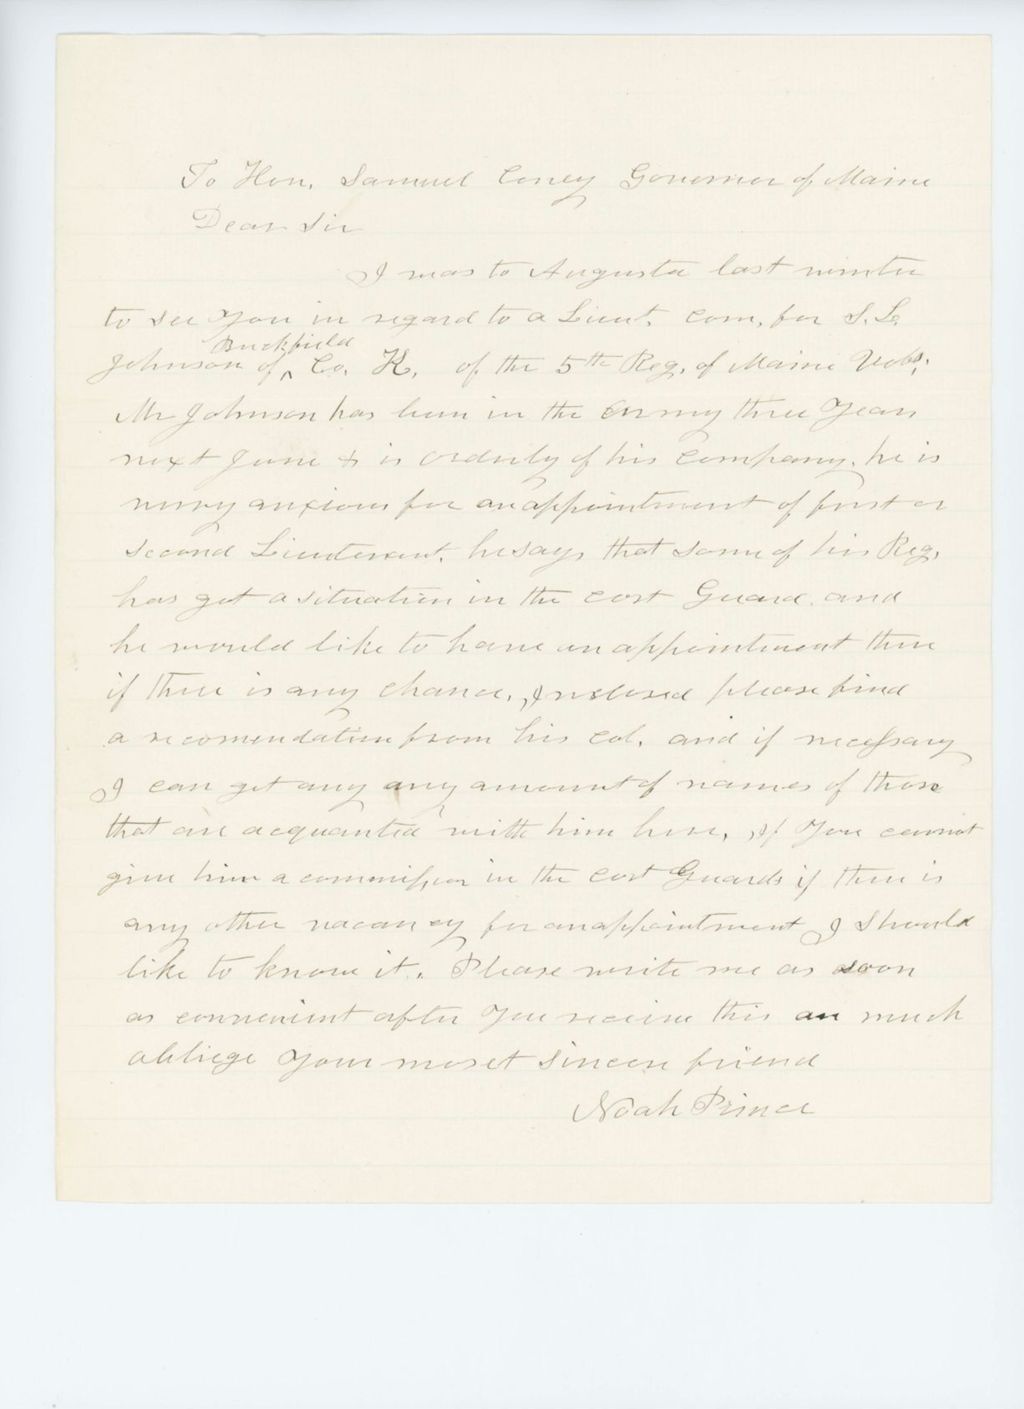 To Hon. Samuel Coney Governor of Maine
Dear Sir
I was to Augusta last winter
to see you in regard to a Lieut. Com, for S. L.
Buckfield
Johnson of ^ Co. K, of the 5th Reg. of Maine Vols.
Mr Johnson has been in the army three years
next June & is orderly of his company. he is
very anxious for an appointment of first or
second Lieutenant. he says that some of his Reg,
has got a situation in the cost Guard. and
he would like to have an appointment there
if there is any chance, Inclosed please find
a recomendation from his Col. and if necessary
I can get any any amount of names of those
that are acquanted with him here, If you cannot
give him a commission in the cost Guards if there is
any other vacancy for an appointment I should
like to know it. Please write me as soon
as convenient after you receive this an much
obliege your moset sincere friend
Noah Prince